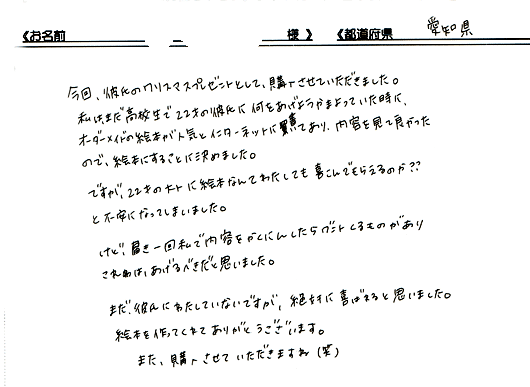 《お名前 様》 《都道府県 愛知県
今回、彼氏のクリスマスプレゼントとして、購入させていただきました。
私はまだ高校生で22才の彼氏に何をあげようかまよっていた時に、
オーダーメイドの絵本が人気とインターネットに書いてあり、内容を見て良かった
ので、絵本にすることに決めました。
ですが、22才の大人に絵本なんてわたしても喜こんでもらえるのか??
と不安になってしまいました。
けど、届き一回私で内容をかくにんしたらグッとくるものがあり
これはあげるべきだと思いました。
まだ、彼氏にわたしていないですが、絶対に喜ばれると思いました。
絵本を作ってくれてありがとうございます。
また、購入させていただきますね(笑)